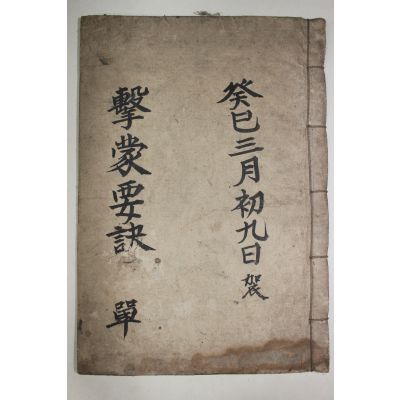 癸巳三月初九日
擊蒙要訣 單